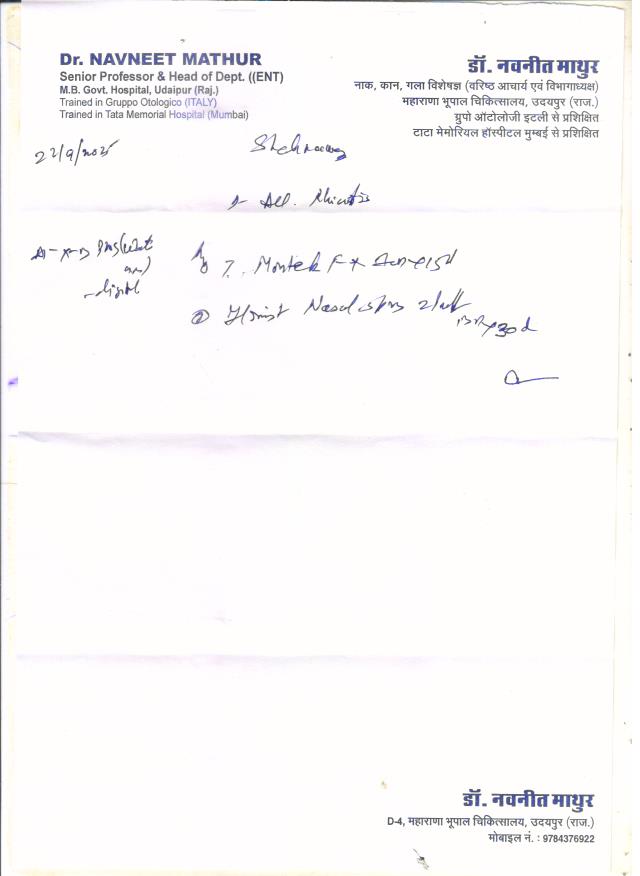 Dr. NAVNEET MATHUR
Senior Professor & Head of Dept. ((ENT)
M.B. Govt. Hospital, Udaipur (Raj.)
Trained in Gruppo Otologico (ITALY)
Trained in Tata Memorial Hospital (Mumbai)
डॉ. नवनीत माथुर
नाक, कान, गला विशेषज्ञ (वरिष्ठ आचार्य एवं विभागाध्यक्ष)
महाराणा भूपाल चिकित्सालय, उदयपुर (राज.)
ग्रुपो ऑटोलोजी इटली से प्रशिक्षित
टाटा मेमोरियल हॉस्पीटल मुम्बई से प्रशिक्षित
22/9/2025
All. Rhinitis
PNS
- digital
T. Montek Fx
② Nasal
30 d
डॉ. नवनीत माथुर
D-4, महाराणा भूपाल चिकित्सालय, उदयपुर (राज.)
मोबाइल नं. : 9784376922